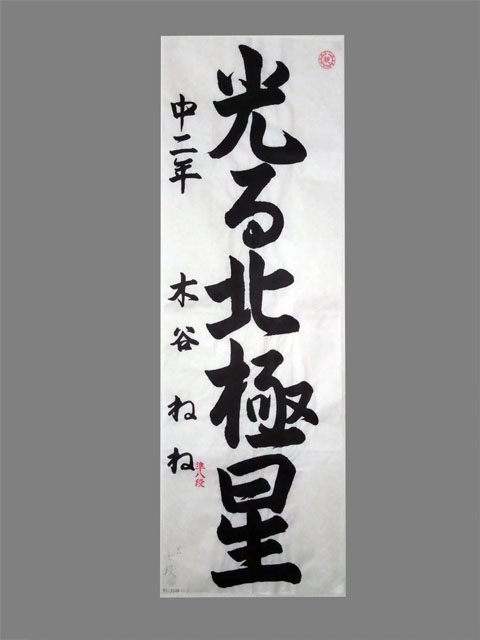 光る北極星
中二年 木谷 ねね
準八段